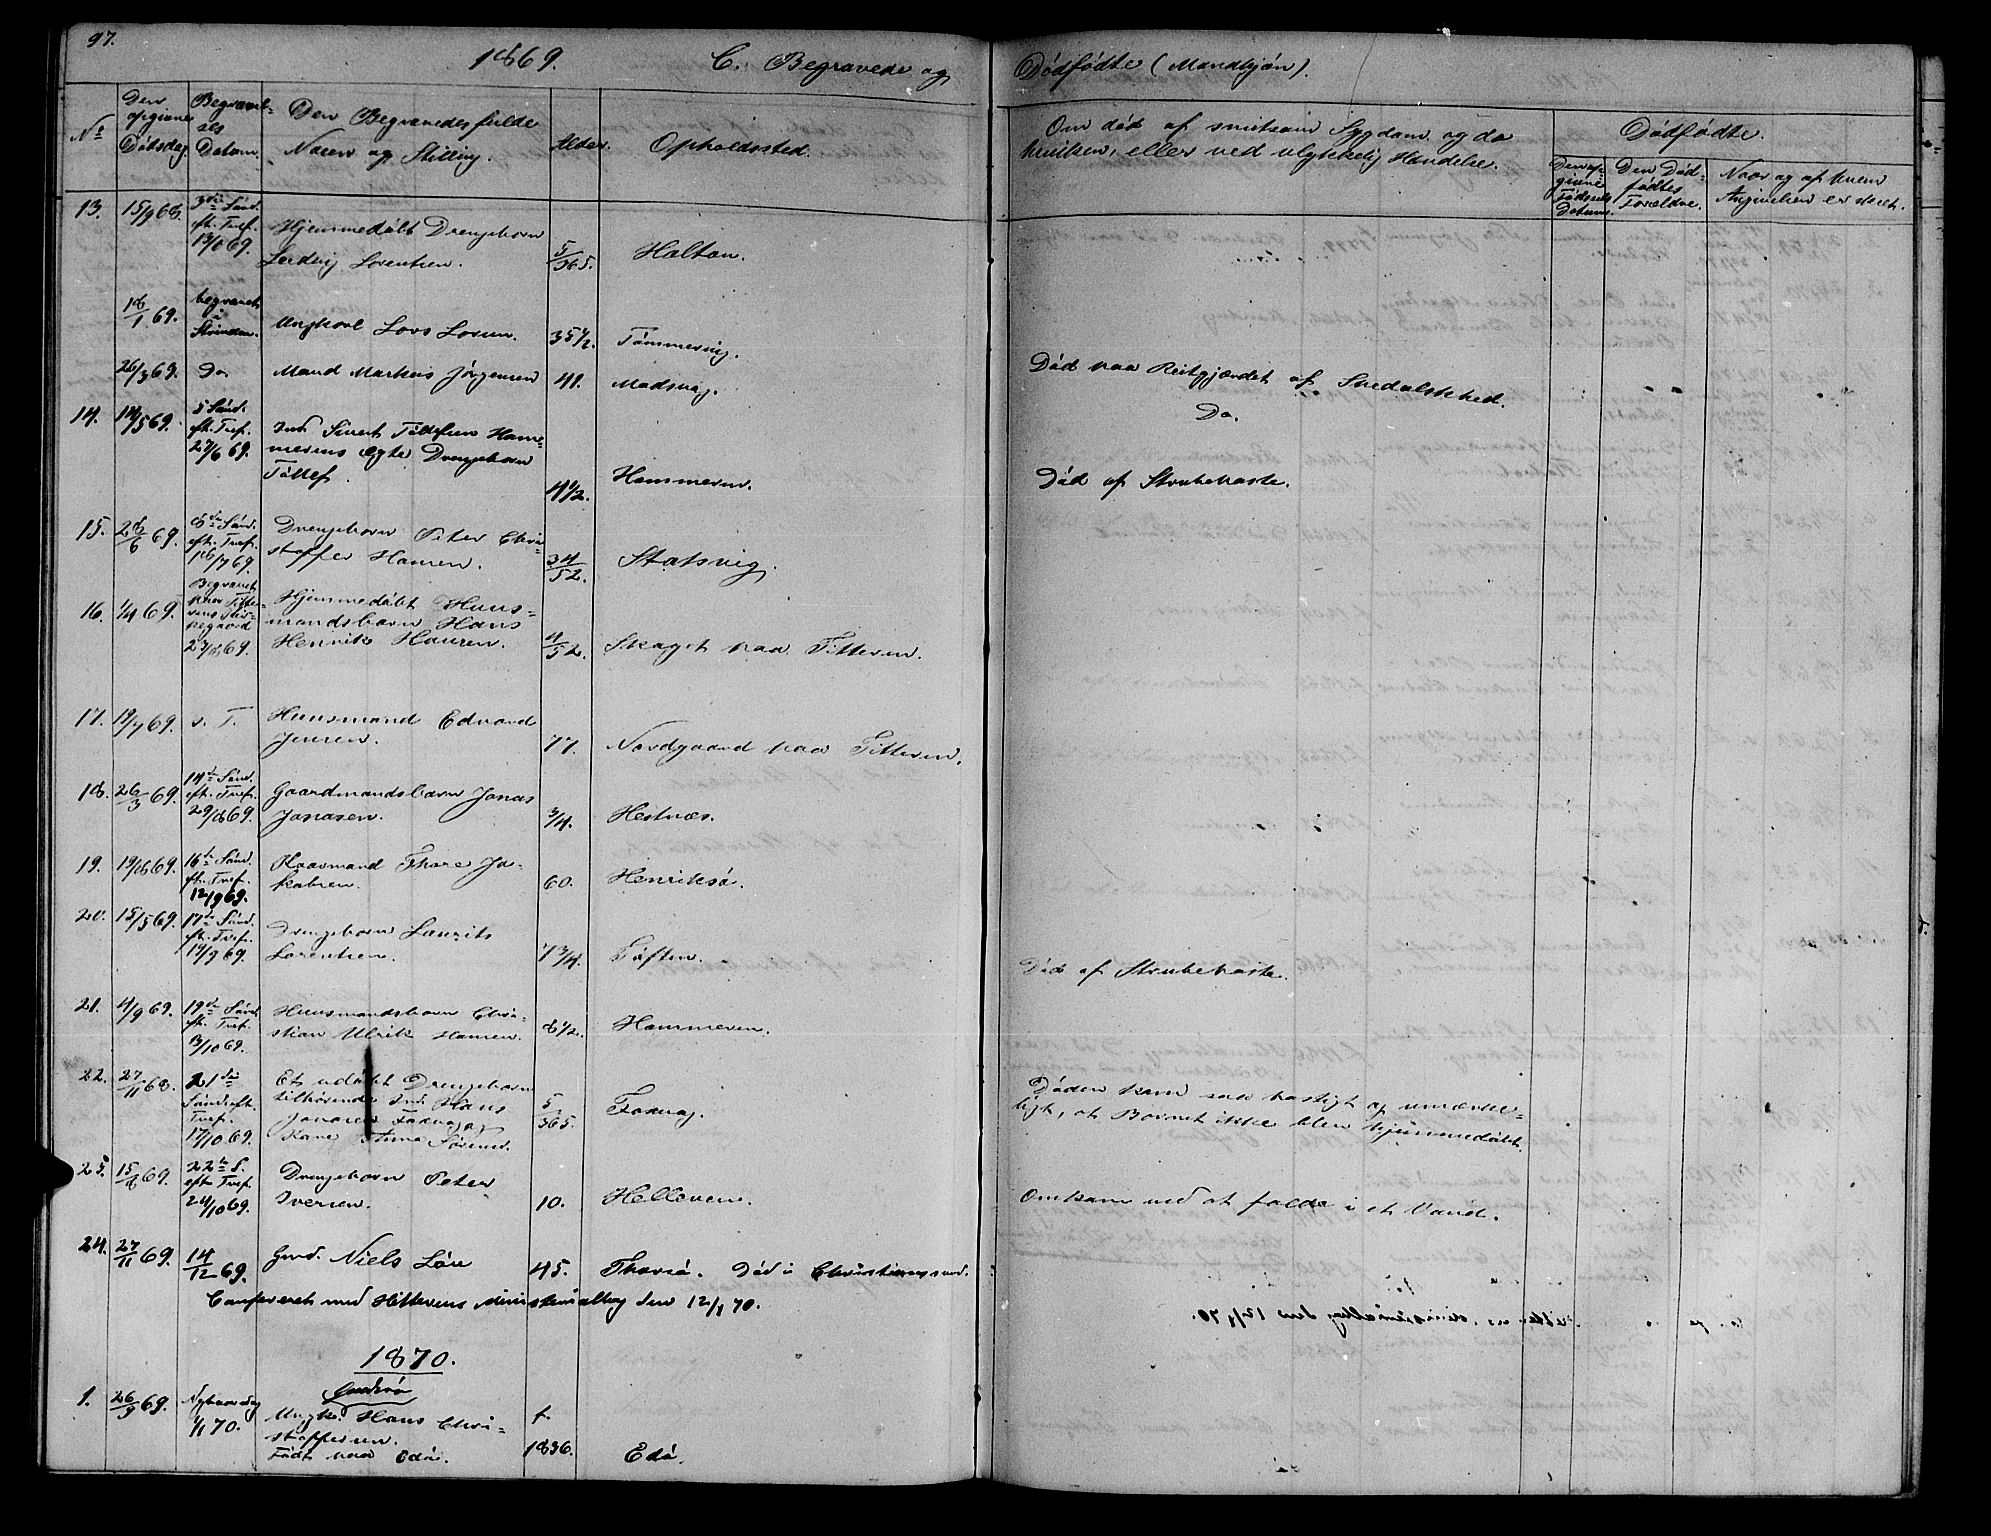 97.
1869. C. Begravede og Dødfødte (Mandkjøn).
No
Den opgivne Dødsdag.
Begravel-
ses
Datum.
Den Begravedes fulde
Navn og Stilling.
Alder.
Opholdssted.
Om død af smitsom Sygdom og da
hvilken, eller ved ulykkelig Hændelse.
Dødfødte.
Den op-
givne
Fødsels
Datum.
Den Død-
fødtes
Forældre.
Naar og af hvem
Angivelsen er skeet.
13. 15/9 68. 3die Sønd.
eft. Tref.
13/6 69. Hjemmedøbt Drengebarn
Ludvig Lorentsen. 5/365. Holtan.
18/1 69. begravet
i
Strinden. Ungkarl Lars Larsen. 35 1/2. Tømmervig. Død paa Reitgjærdet af Spedalskhed.
26/3 69. Do. Mand Markus Jørgensen 41. Madsvåg. Do.
14. 14/5 69. 5 Sønd.
eft. Tref.
27/6 69. Ind. Sivert Tøllefsen Ham-
merens ægte Drengebarn
Tøllef. 4 1/2. Hammeren. Død af Strubehoste.
15. 28/6 69. 8de Sønd.
eft. Tref.
18/7 69. Drengebarn Peter Chri-
stoffer Hansen. 34/52. Stolsvig.
16. 1/4 69. Begravet
paa Titte-
rens
27/6 69. Hjemmedøbt Huus-
mandsbarn Hans
Henrik Hansen. 4/52. Skaget paa Titteren.
17. 19/7 69. s. T. Huusmand Edvard
Jensen. 77. Nordgaard paa Titteren.
18. 26/3 69. 14de Sønd.
eft. Tref.
29/8 69. Gaardmandsbarn Jonas
Jonasen. 3/4. Hestnæs.
19. 19/8 69. 16de Sønd.
eft. Tref.
12/9 69. Thore Ja-
kobsen. 60. Henriksø.
20. 15/5 69. 17de Sønd.
eft. Tref.
19/9 69. Drengebarn Laurits
Lorentsen. 7 3/4. Tøften. Død af Strubehoste.
21. 4/9 69. 19de Sønd.
eft. Tref.
13/10 69. Huusmandsbarn Chri-
stian Ulrik Hansen. 8 1/2. Hammeren.
22. 27/11 68. 21de
Sønd. eft.
Tref.
17/10 69. Et udøbt Drengebarn
tilhørende Ind. Hans
Jonasen Faxvåg og
Kone Anna 5/365. Faxvåg. Døden kom saa hastigt og umærke-
ligt, at Barnet ikke blev hjemmedøbt.
23. 15/8 69. 22de S.
eft. Tref.
24/10 69. Drengebarn Peter
Iversen. 10. Helleven. Omkom ved at falde i et Vand.
24. 27/11 69. 14/12 69. Gmd. Niels Løn 45. Thorsø. Død i Christianssund.
Confereret med Hitterens Ministerialbog den 12/1 70.
1870.
1. 26/9 69. Nytaarsdag
1/1 70. Ungk. Hans Chri-
stoffersen.
Født paa Edø. f.
1836. Edø.